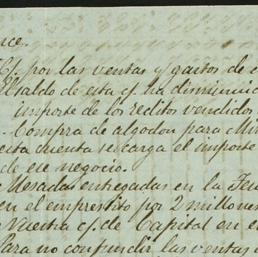 nce.
Cf. por las ventas y gastos de
saldo de esta cf. ha disminuid
importe de los reditos vendidos
Compra de algodon para Min
esta cuenta se carga el importe
de ese negocio.
Mesadas entregadas en la Teso
en el emprestito por 2 millones
Vuestra cf. de Capital en el
Para no confundir las ventas